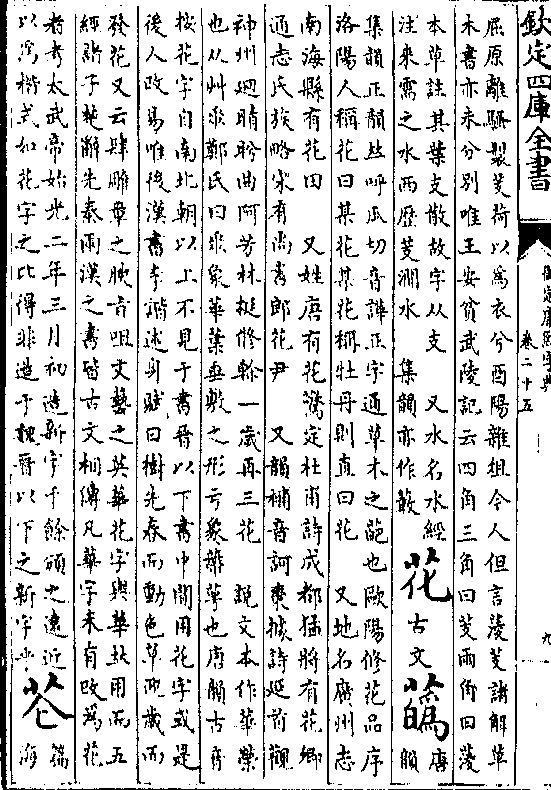 欽定四庫全書
御定康熙字典
卷二十五
九
屈原離騷製芰荷以為衣兮酉陽雜俎今人但言菱芰諸解草
木書亦未分別唯王安貧武陵記云四角三角曰芰兩角曰菱
本草註其葉支散故字从支 又水名水經
注來需之水西歷芰澗水 集韻亦作
花 古文 唐
韻
集韻正韻𠀤呼瓜切音譁正字通草木之葩也歐陽修花品序
洛陽人稱花曰某花某花稱牡丹則直曰花 又地名廣州志
南海縣有花田 又姓唐有花驚定杜甫詩成都猛將有花卿
通志氏族略宋有尚書郎花尹 又韻補音訶棗據詩延首觀
神州廻睛盻曲阿芳林挺修榦一歲再三花 說文本作華榮
也从艸𠌶鄭氏曰𠌶象華葉垂敷之形亏象蔕萼也唐韻古音
按花字自南北朝以上不見于書晉以下書中間用花字或是
後人改易唯後漢書李諧述身賦曰樹先春而動色草迎歲而
發花又云肆雕章之腴旨咀文藝之英華花字與華𠀤用而五
經諸子楚辭先秦兩漢之書皆古文相傳凡華字未有改為花
者考太武帝始光二年三月初造新字千餘頒之遠近
以為楷式如花字之比得非造于魏晉以下之新字乎
芲 篇
海